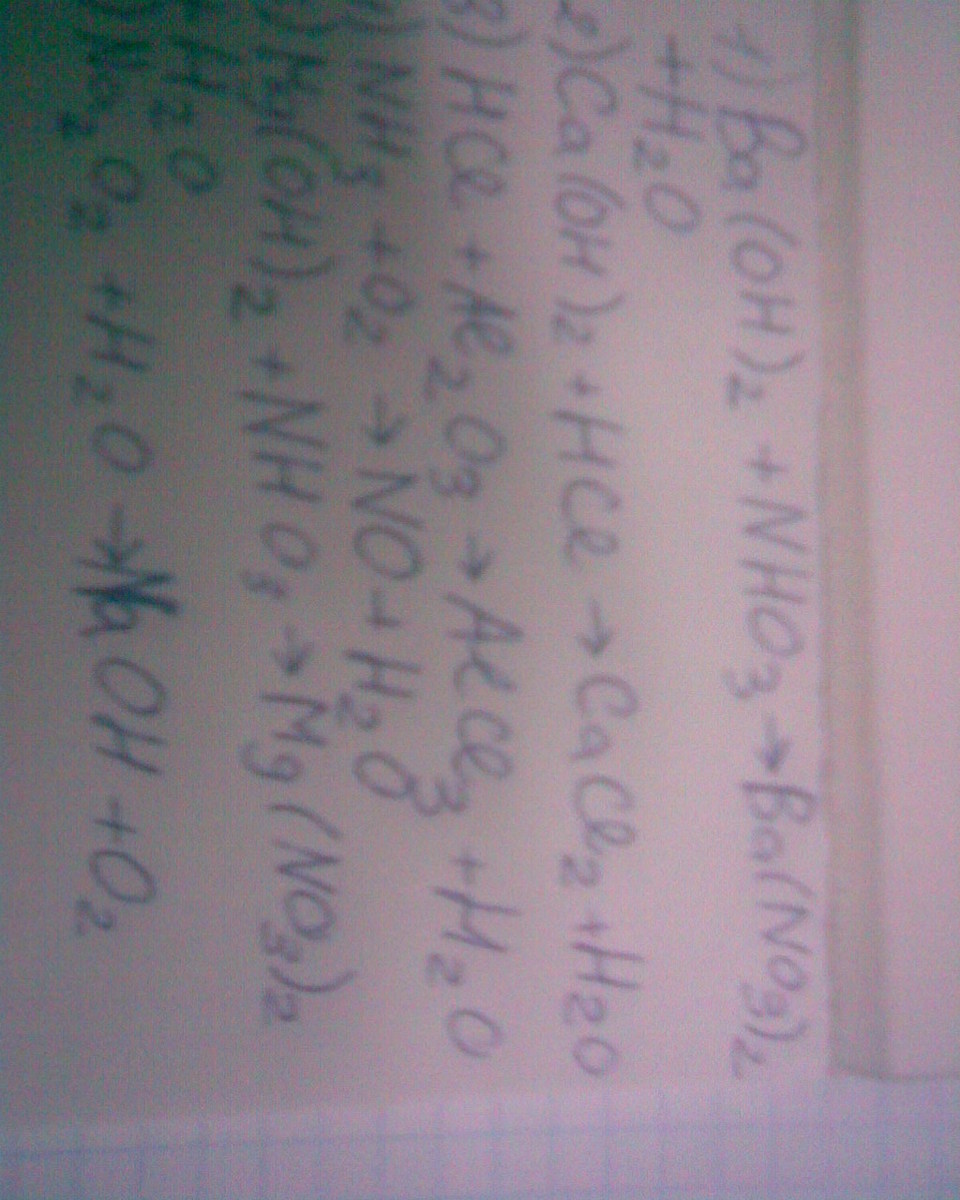 1) Ba(OH)₂ + NHO₃ → Ba(NO₃)₂
+ H₂O
2) Ca(OH)₂ + HCl → CaCl₂ + H₂O
3) HCl + Al₂O₃ → AlCl₃ + H₂O
) NH₃ + O₂ → NO + H₂O
) Mg(OH)₂ + NHO₃ → Mg(NO₃)₂
+ H₂O
) Na₂O₂ + H₂O → NaOH + O₂